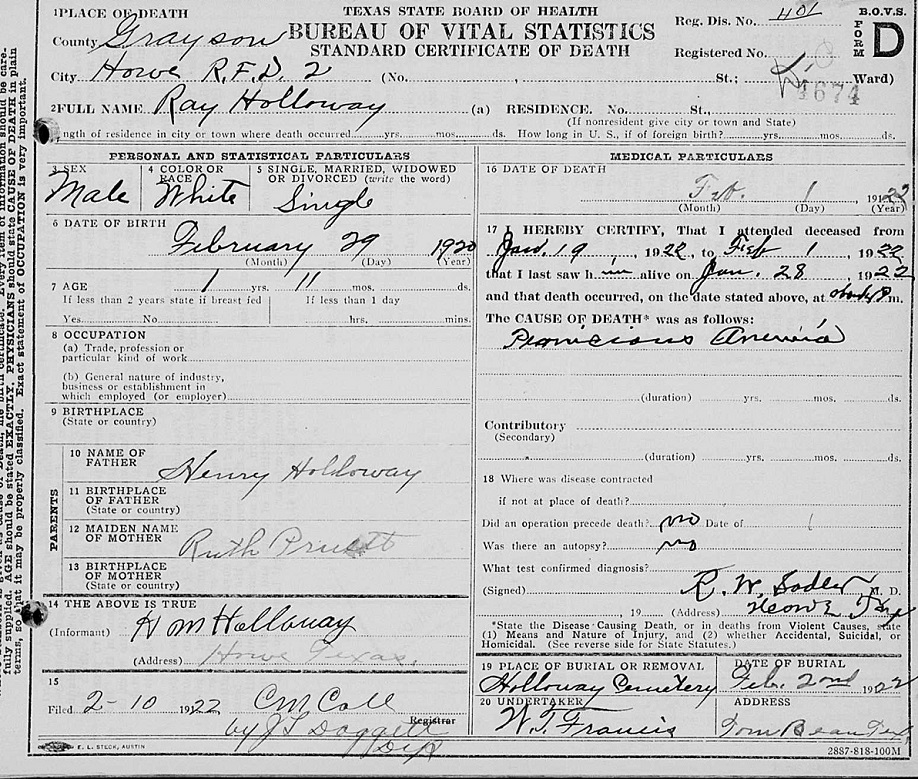 TEXAS STATE BOARD OF HEALTH
BUREAU OF VITAL STATISTICS
STANDARD CERTIFICATE OF DEATH
B.O.V.S.
FORM D
1 PLACE OF DEATH
Reg. Dis. No. 401
County Grayson
Registered No.
City Howe R.F.D. 2 (No. , St.; Ward)
4674
2 FULL NAME Ray Holloway (a) RESIDENCE. No. St.
(If nonresident give city or town and State)
ngth of residence in city or town where death occurred yrs. mos. ds. How long in U. S., if of foreign birth? yrs. mos. ds.
PERSONAL AND STATISTICAL PARTICULARS
3 SEX
Male
4 COLOR OR RACE
White
5 SINGLE, MARRIED, WIDOWED OR DIVORCED (write the word)
Single
6 DATE OF BIRTH
February 29 1920
(Month) (Day) (Year)
7 AGE 1 yrs. 11 mos. ds.
If less than 2 years state if breast fed If less than 1 day
Yes No hrs. mins.
8 OCCUPATION
(a) Trade, profession or
particular kind of work
(b) General nature of industry,
business or establishment in
which employed (or employer)
9 BIRTHPLACE
(State or country)
PARENTS
10 NAME OF FATHER Henry Holloway
11 BIRTHPLACE OF FATHER
(State or country)
12 MAIDEN NAME OF MOTHER Ruth Pruett
13 BIRTHPLACE OF MOTHER
(State or country)
14 THE ABOVE IS TRUE
(Informant) H M Holloway
(Address) Howe Texas.
15
Filed 2-10 1922 C M Call
Registrar
by J L Doggett
Dep
E. L. STECK, AUSTIN
MEDICAL PARTICULARS
16 DATE OF DEATH
Feb. 1 1922
(Month) (Day) (Year)
17 I HEREBY CERTIFY, That I attended deceased from
Jan. 19, 1922, to Feb 1 1922
that I last saw him alive on Jan. 28, 1922
and that death occurred, on the date stated above, at m.
The CAUSE OF DEATH* was as follows:
Pernicious Anemia
(duration) yrs. mos. ds.
Contributory
(Secondary)
(duration) yrs. mos. ds.
18 Where was disease contracted
if not at place of death?
Did an operation precede death? no Date of
Was there an autopsy? no
What test confirmed diagnosis?
(Signed) R. W. Sadler M. D.
19 (Address) Howe Tex
*State the Disease Causing Death, or in deaths from Violent Causes, state
(1) Means and Nature of Injury, and (2) whether Accidental, Suicidal, or
Homicidal. (See reverse side for State Statutes.)
19 PLACE OF BURIAL OR REMOVAL
Holloway Cemetery
DATE OF BURIAL
Feb. 2nd 1922
20 UNDERTAKER
W. T. Francis
ADDRESS
Tom Bean Tex
2887-818-100M
fully supplied. AGE should be stated EXACTLY, PHYSICIANS should state CAUSE OF DEATH in plain
terms, so that it may be properly classified. Exact statement of OCCUPATION is very important.